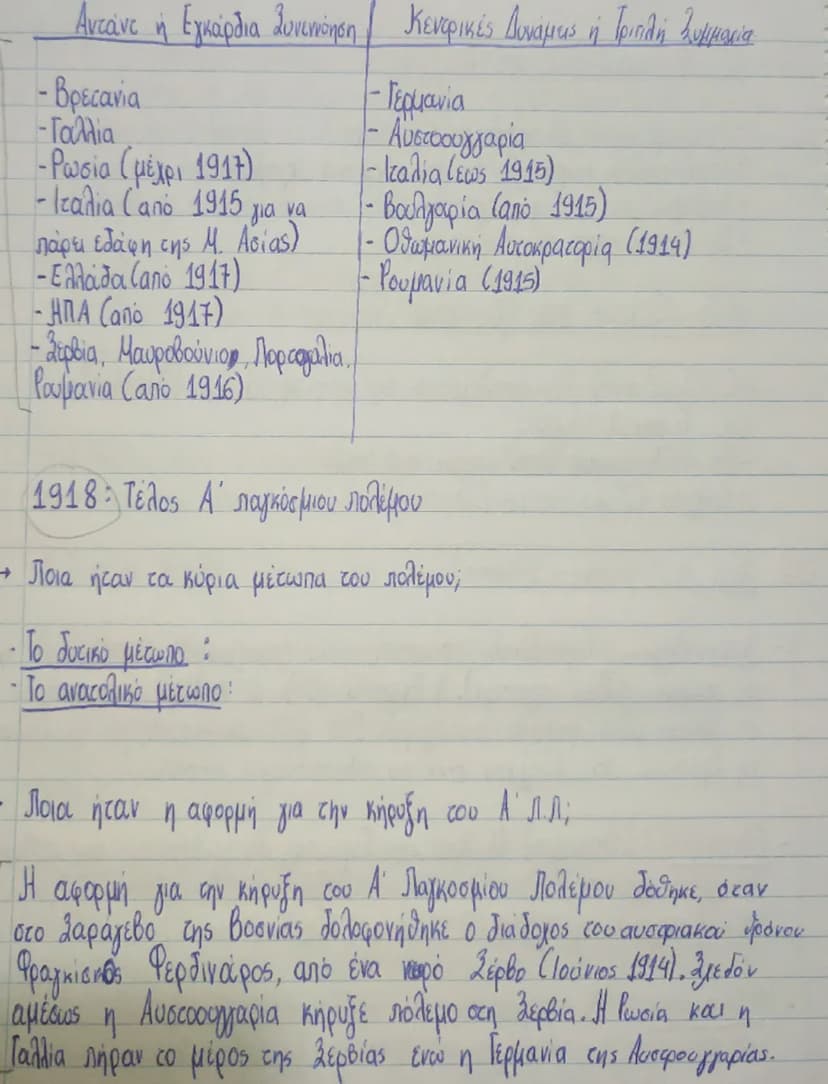 Αντάντ ή Εγκάρδια Συνεννόηση
- Βρετανία
- Γαλλία
- Ρωσία (μέχρι 1917)
- Ιταλία (από 1915 για να
πάρει εδάφη της Μ. Ασίας)
- Ελλάδα (από 1917)
- ΗΠΑ (από 1917)
- Σερβία, Μαυροβούνιο, Πορτογαλία,
Ρουμανία (από 1916)
Κεντρικές Δυνάμεις ή Τριπλή Συμμαχία
- Γερμανία
- Αυστροουγγαρία
- Ιταλία (έως 1915)
- Βουλγαρία (από 1915)
- Οθωμανική Αυτοκρατορία (1914)
- Ρουμανία (1915)
1918: Τέλος Α' παγκόσμιου πολέμου
→ Ποια ήταν τα κύρια μέτωπα του πολέμου;
- Το δυτικό μέτωπο :
- Το ανατολικό μέτωπο:
Ποια ήταν η αφορμή για την κήρυξη του Α' Π.Π;
Η αφορμή για την κήρυξη του Α' Παγκοσμίου Πολέμου δόθηκε, όταν
στο Σαράγεβο της Βοσνίας δολοφονήθηκε ο διάδοχος του αυστριακού θρόνου
Φραγκίσκος Φερδινάρος, από ένα Σέρβο (Ιούνιος 1914). Σχεδόν
αμέσως η Αυστροουγγαρία κήρυξε πόλεμο στη Σερβία. Η Ρωσία και η
Γαλλία πήραν το μέρος της Σερβίας ενώ η Γερμανία της Αυστροουγγαρίας.